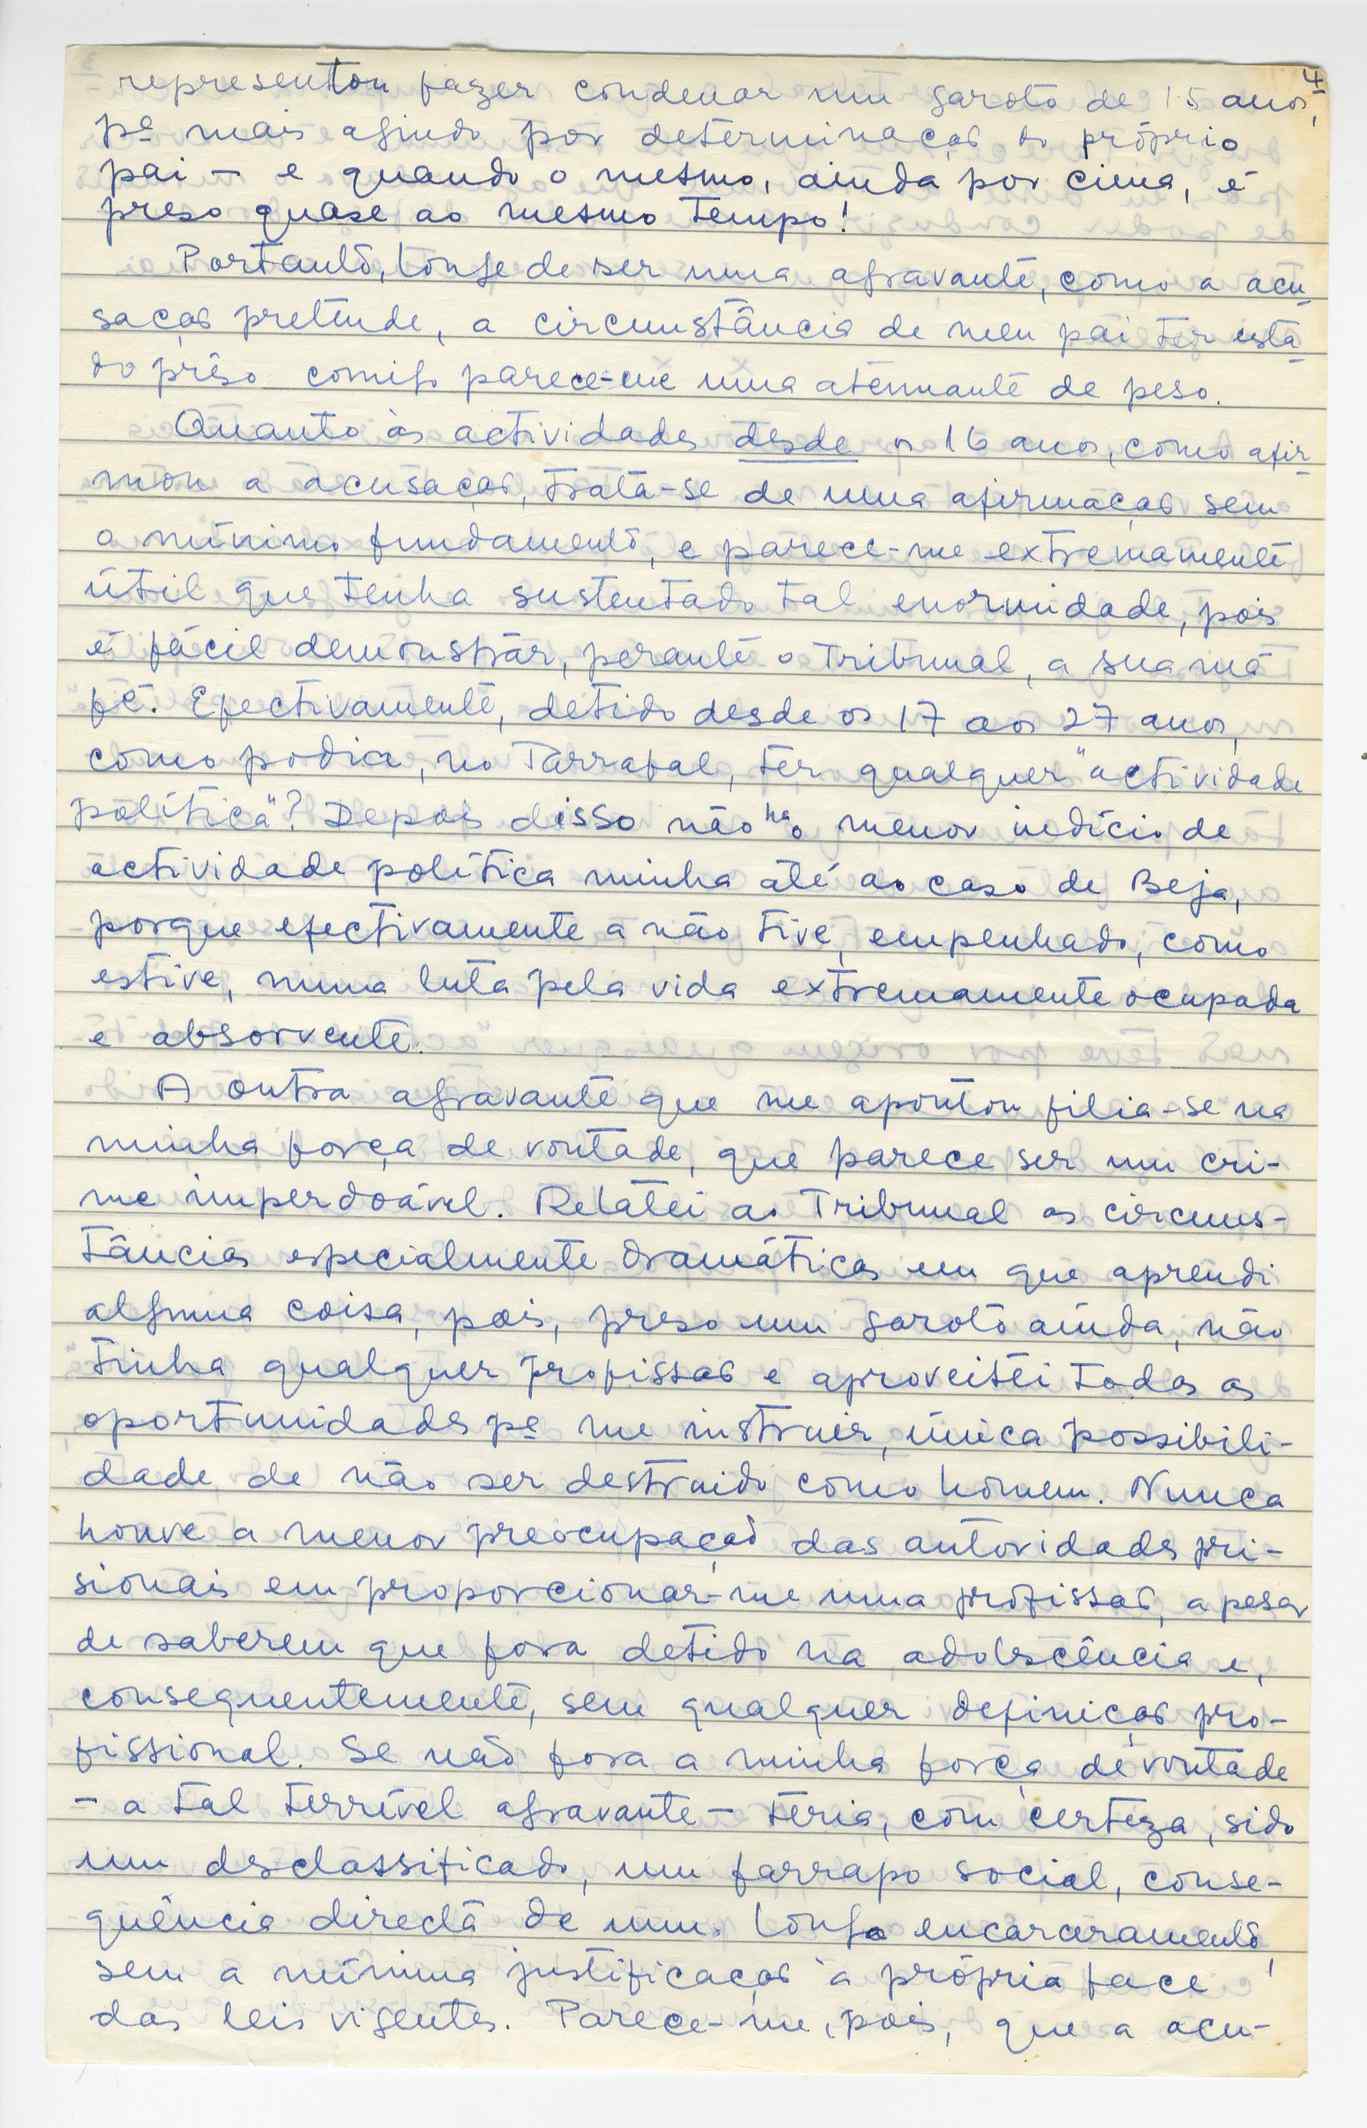 4
representou fazer condenar um garoto de 15 anos,
pª mais agindo por determinação do próprio
pai — e quando o mesmo, ainda por cima, é
preso quase ao mesmo tempo!
Portanto, longe de ser uma agravante, como a acu-
sação pretende, a circunstância de meu pai ter esta-
do prêso comigo parece-me uma atenuante de peso.
Quanto às actividades desde os 16 anos, como afir-
mou a acusação, trata-se de uma afirmação sem
o mínimo fundamento, e parece-me extremamente
útil que tenha sustentado tal enormidade, pois
é fácil demonstrar, perante o Tribunal, a sua má
fé. Efectivamente, detido desde os 17 aos 27 anos,
como podia, no Tarrafal, ter qualquer "actividade
política"? Depois disso não há o menor indício de
actividade política minha até ao caso de Beja,
porque efectivamente a não tive, empenhado, como
estive, numa luta pela vida extremamente ocupada
e absorvente.
A outra agravante que me apontou filia-se na
minha força de vontade, que parece ser um cri-
me imperdoável. Relatei ao Tribunal as circuns-
tâncias especialmente dramáticas em que aprendi
alguma coisa, pois, preso um garoto ainda, não
tinha qualquer profissão e aproveitei todas as
oportunidades pª me instruir, única possibili-
dade de não ser destruido como homem. Nunca
houve a menor preocupação das autoridades pri-
sionais em proporcionar-me uma profissão, apesar
de saberem que fora detido na adolescência e,
consequentemente, sem qualquer definição pro-
fissional. Se não fora a minha força de vontade
— a tal terrível agravante — teria, com certeza, sido
um desclassificado, um farrapo social, conse-
quência directa de um longo encarceramento,
sem a mínima justificação à própria face
das leis vigentes. Parece-me, pois, que a acu-